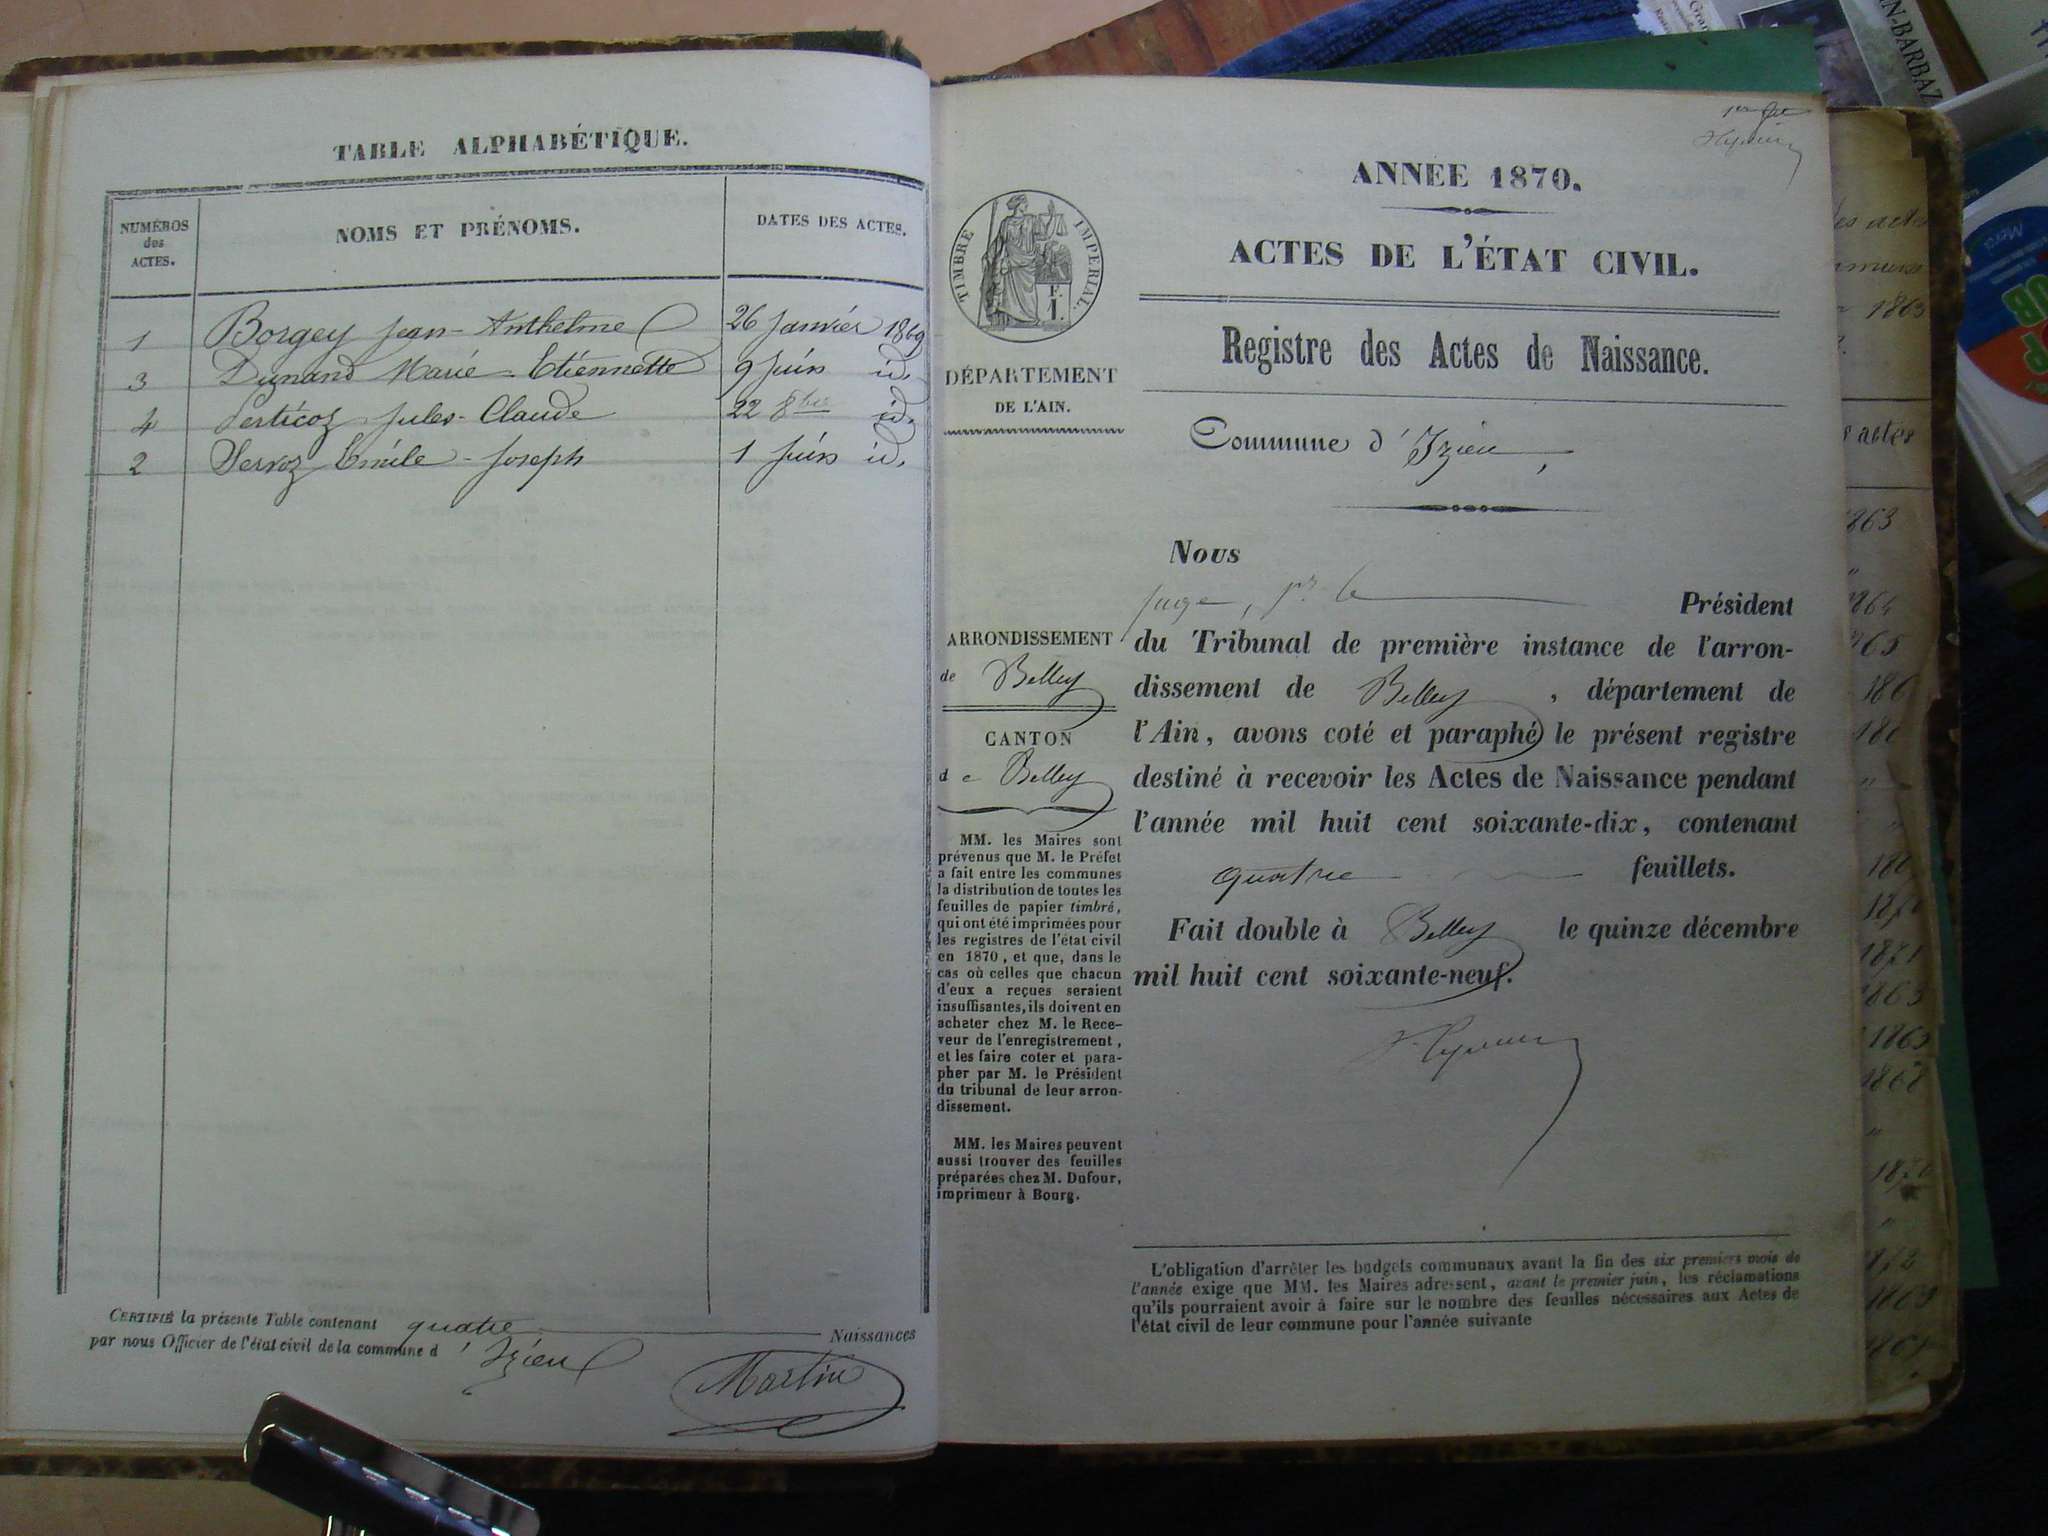 TABLE ALPHABÉTIQUE.
NUMÉROS des ACTES.
NOMS ET PRÉNOMS.
DATES DES ACTES.
1 Borgey Jean-Anthelme 26 Janvier 1869
3 Dunand Marie-Etiennette 9 Juin id.
4 Perticoz Jules-Claude 22 8bre id.
2 Servoz Emile-Joseph 1 Juin id.
CERTIFIÉ la présente Table contenant quatre Naissances
par nous Officier de l'état civil de la commune d'Izieu
Martin
TIMBRE IMPERIAL.
F.
1.
DÉPARTEMENT
DE L'AIN.
ARRONDISSEMENT
de Belley
CANTON
de Belley
MM. les Maires sont
prévenus que M. le Préfet
a fait entre les communes
la distribution de toutes les
feuilles de papier timbré,
qui ont été imprimées pour
les registres de l'état civil
en 1870, et que, dans le
cas où celles que chacun
d'eux a reçues seraient
insuffisantes, ils doivent en
acheter chez M. le Rece-
veur de l'enregistrement,
et les faire coter et para-
pher par M. le Président
du tribunal de leur arron-
dissement.
MM. les Maires peuvent
aussi trouver des feuilles
préparées chez M. Dufour,
imprimeur à Bourg.
ANNÉE 1870.
ACTES DE L'ÉTAT CIVIL.
Registre des Actes de Naissance.
Commune d'Izieu,
Nous
juge, pr le Président
du Tribunal de première instance de l'arron-
dissement de Belley, département de
l'Ain, avons coté et paraphé le présent registre
destiné à recevoir les Actes de Naissance pendant
l'année mil huit cent soixante-dix, contenant
quatre feuillets.
Fait double à Belley le quinze décembre
mil huit cent soixante-neuf.
L'obligation d'arrêter les budgets communaux avant la fin des six premiers mois de
l'année exige que MM. les Maires adressent, avant le premier juin, les réclamations
qu'ils pourraient avoir à faire sur le nombre des feuilles nécessaires aux Actes de
l'état civil de leur commune pour l'année suivante
actes
1863
1871
1863
1868
N-BARBAZ